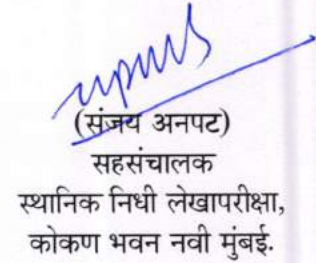 (संजय अनपट)
सहसंचालक
स्थानिक निधी लेखापरीक्षा,
कोकण भवन नवी मुंबई.